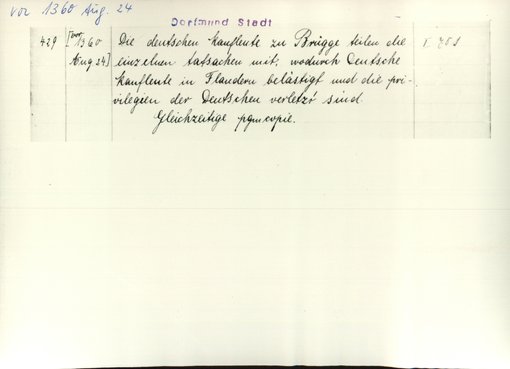 vor 1360 Aug. 24
Dortmund Stadt
429 [vor 1360 Die deutschen kaufleute zu Brügge teilen die
Aug 24] einzelnen tatsachen mit, wodurch Deutsche
kaufleute in Flandern belästigt und die pri-
vilegien der Deutschen verletzt sind.
Gleichzeitige pgmcopie.